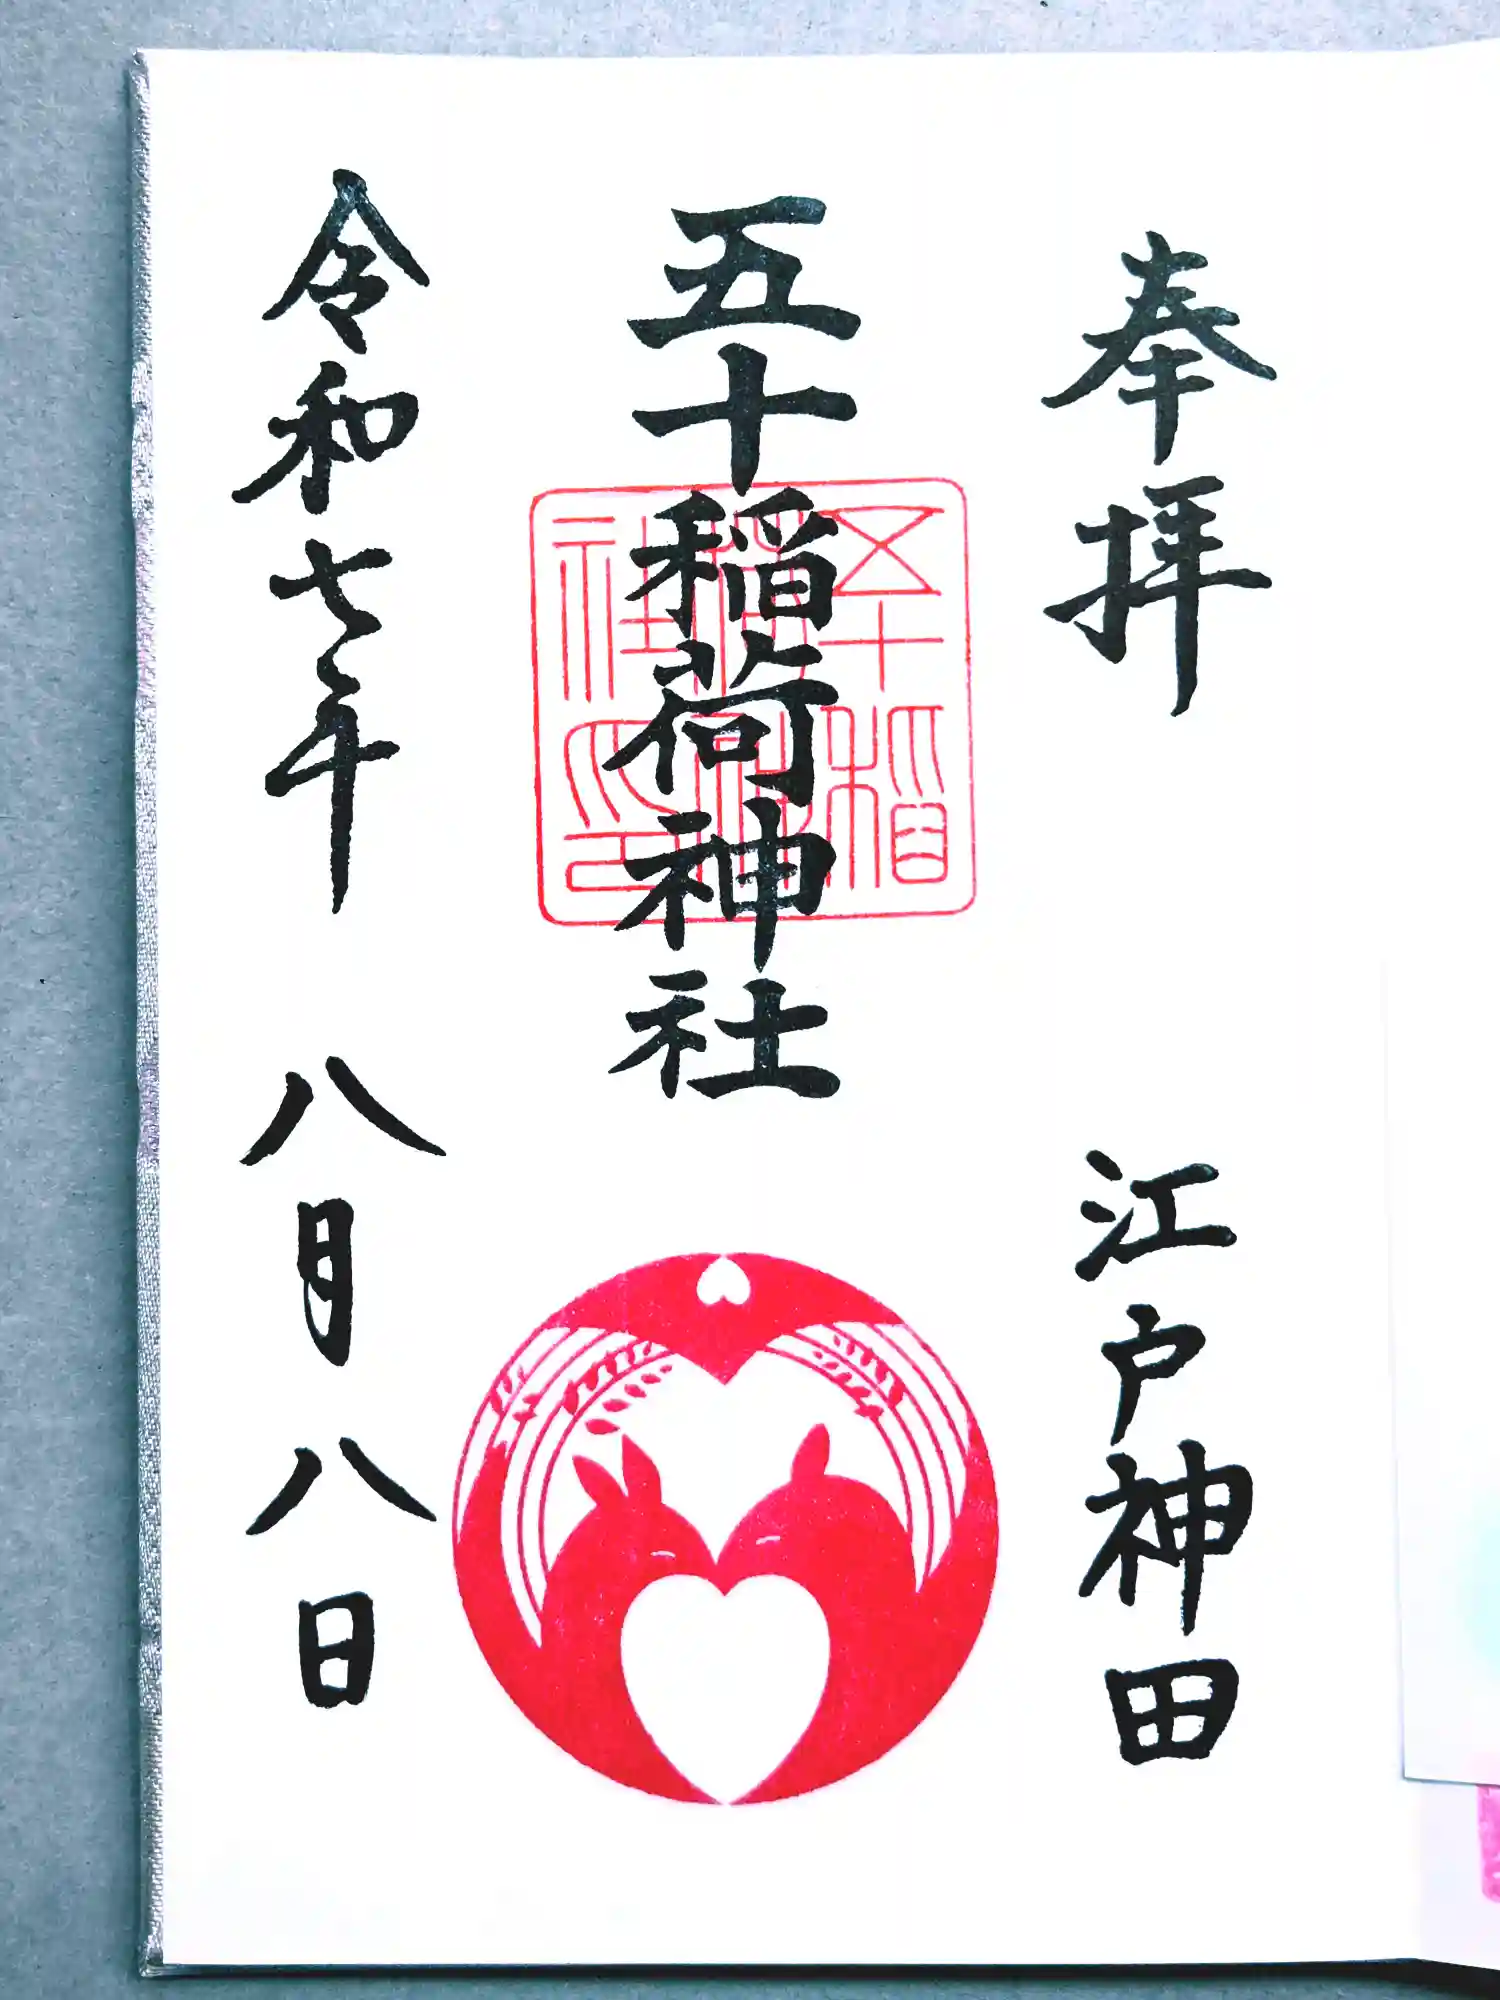 奉拝 江戸神田
五十稲荷神社
五十稲荷神社印
令和七年 八月八日